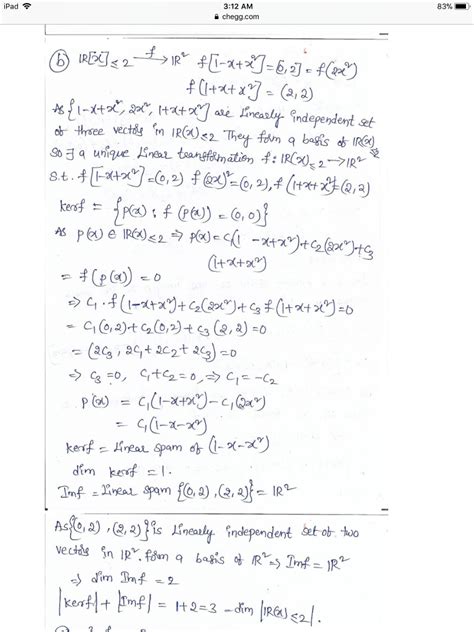 iPad 3:12 AM 83%
chegg.com
(b) IR[x]≤2 —f→ IR² f[1-x+x²]=(0,2]=f(2x²)
f(1+x+x²] = (2,2)
As {1-x+x², 2x², 1+x+x²} are Linearly independent set
of three vectors in IR(x)≤2 They form a basis of IR(x)≤2
So ∃ a unique Linear transformation f: IR(x)≤2 → IR²
S.t. f[1-x+x²]=(0,2) f(2x)²=(0,2), f(1+x+x²)=(2,2)
Kerf = {p(x) : f(p(x)) = (0,0)}
As p(x) ∈ IR(x)≤2 ⇒ p(x)= C1(1-x+x²)+C2(2x²)+C3
(1+x+x²)
= f(p(x)) = 0
⇒ C1·f(1-x+x²)+C2(2x²)+C3 f(1+x+x²)=0
= C1(0,2)+C2(0,2)+C3(2,2)=0
= (2C3, 2C1+2C2+2C3)=0
⇒ C3=0, C1+C2=0, ⇒ C1=-C2
p(x) = C1(1-x+x²)-C1(2x²)
= C1(1-x-x²)
Kerf = Linear spam of (1-x-x²)
dim Kerf = 1.
Imf = Linear spam {(0,2),(2,2)} = IR²
As{(0,2),(2,2)} is Linearly independent set of two
vectors in IR². form a basis of IR² ⇒ Imf = IR²
⇒ dim Imf = 2
|Kerf|+|Imf| = 1+2=3 - dim |IR(x)≤2|.